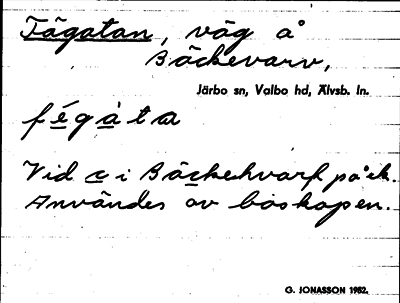 Fägatan, väg å
Bäckevarv,
Järbo sn, Valbo hd, Älvsb. ln.
fégàta
Vid c i Bäckehvarf på ek.
Användes av boskapen.
G. JONASSON 1982.